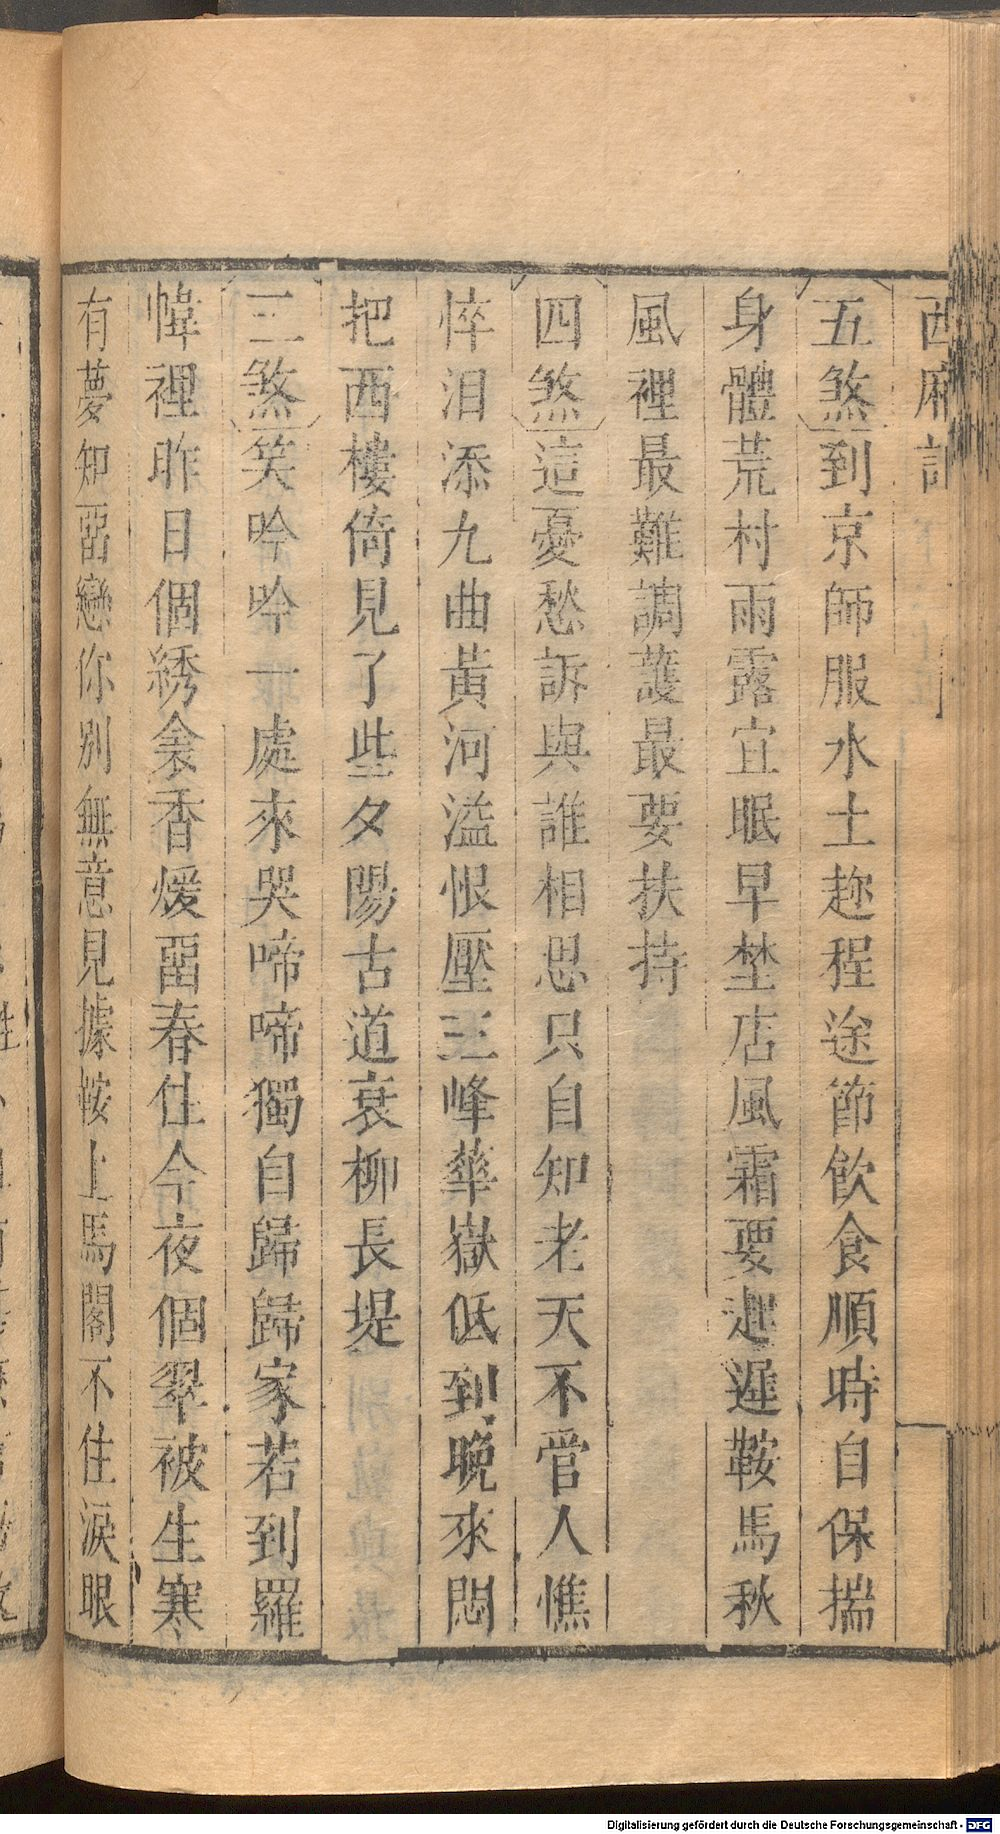 西廂記
五煞到京師服水土趂程途節飲食順時自保揣
身體荒村雨露宜眠早埜店風霜要起遲鞍馬秋
風裡最難調護最要扶持
四煞這憂愁訴與誰相思只自知老天不管人憔
悴泪添九曲黃河溢恨壓三峰華嶽低到晚來悶
把西樓倚見了些夕陽古道衰柳長堤
三煞笑吟吟一處來哭啼啼獨自歸歸家若到羅
幃裡昨日個綉衾香煖畱春住今夜個翠被生寒
有夢知畱戀你別無意見據鞍上馬閣不住淚眼
Digitalisierung gefördert durch die Deutsche Forschungsgemeinschaft - DFG